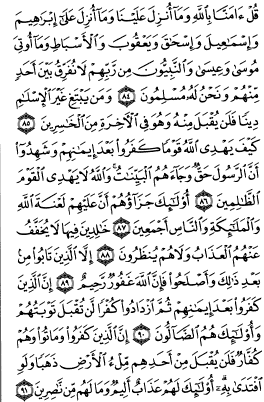 قُلْ ءَامَنَّا بِٱللَّهِ وَمَآ أُنزِلَ عَلَيْنَا وَمَآ أُنزِلَ عَلَىٰٓ إِبْرَٰهِيمَ
وَإِسْمَٰعِيلَ وَإِسْحَٰقَ وَيَعْقُوبَ وَٱلْأَسْبَاطِ وَمَآ أُوتِىَ
مُوسَىٰ وَعِيسَىٰ وَٱلنَّبِيُّونَ مِن رَّبِّهِمْ لَا نُفَرِّقُ بَيْنَ أَحَدٍ
مِّنْهُمْ وَنَحْنُ لَهُۥ مُسْلِمُونَ ٨٤ وَمَن يَبْتَغِ غَيْرَ ٱلْإِسْلَٰمِ
دِينًا فَلَن يُقْبَلَ مِنْهُ وَهُوَ فِى ٱلْءَاخِرَةِ مِنَ ٱلْخَٰسِرِينَ ٨٥
كَيْفَ يَهْدِى ٱللَّهُ قَوْمًا كَفَرُوا۟ بَعْدَ إِيمَٰنِهِمْ وَشَهِدُوٓا۟
أَنَّ ٱلرَّسُولَ حَقٌّ وَجَآءَهُمُ ٱلْبَيِّنَٰتُ ۚ وَٱللَّهُ لَا يَهْدِى ٱلْقَوْمَ
ٱلظَّٰلِمِينَ ٨٦ أُو۟لَٰٓئِكَ جَزَآؤُهُمْ أَنَّ عَلَيْهِمْ لَعْنَةَ ٱللَّهِ
وَٱلْمَلَٰٓئِكَةِ وَٱلنَّاسِ أَجْمَعِينَ ٨٧ خَٰلِدِينَ فِيهَا لَا يُخَفَّفُ
عَنْهُمُ ٱلْعَذَابُ وَلَا هُمْ يُنظَرُونَ ٨٨ إِلَّا ٱلَّذِينَ تَابُوا۟ مِنۢ
بَعْدِ ذَٰلِكَ وَأَصْلَحُوا۟ فَإِنَّ ٱللَّهَ غَفُورٌ رَّحِيمٌ ٨٩ إِنَّ ٱلَّذِينَ
كَفَرُوا۟ بَعْدَ إِيمَٰنِهِمْ ثُمَّ ٱزْدَادُوا۟ كُفْرًا لَّن تُقْبَلَ تَوْبَتُهُمْ
وَأُو۟لَٰٓئِكَ هُمُ ٱلضَّآلُّونَ ٩٠ إِنَّ ٱلَّذِينَ كَفَرُوا۟ وَمَاتُوا۟ وَهُمْ
كُفَّارٌ فَلَن يُقْبَلَ مِنْ أَحَدِهِم مِّلْءُ ٱلْأَرْضِ ذَهَبًا وَلَوِ
ٱفْتَدَىٰ بِهِۦٓ ۗ أُو۟لَٰٓئِكَ لَهُمْ عَذَابٌ أَلِيمٌ وَمَا لَهُم مِّن نَّٰصِرِينَ ٩١